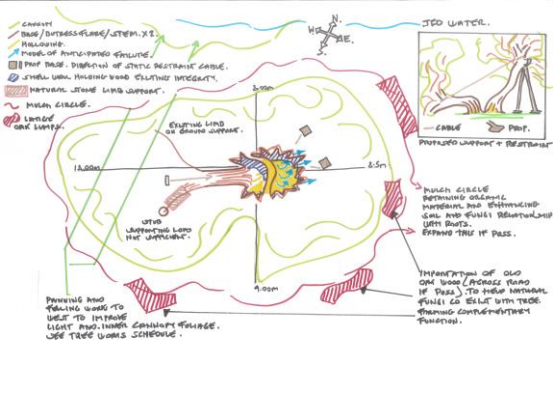 CANOPY
BASE/BUTRESS FLARE/STEM. X2.
HOLLOWING.
MODEL OF ANTICIPATED FAILURE.
PROP BASE. DIRECTION OF STATIC RESTRAINT CABLE.
SHELL WALL HOLDING WOOD EXISTING INTEGRITY.
NATURAL STONE LIMB SUPPORT.
MULCH CIRCLE.
LARGE
OAK LUMPS.
N.
E.
JED WATER.
CABLE
PROP.
PROPOSED SUPPORT + RESTRAINT
EXISTING LIMB
ON GROUND SUPPORT.
STUB
SUPPORTING LOAD
NOT SUFFICIENT.
MULCH CIRCLE
RETAINING ORGANIC
MATERIAL AND ENHANCING
SOIL AND FUNGI RELATIONSHIP
WITH ROOTS.
EXPAND THIS IF POSS.
IMPORTATION OF OLD
OAK WOOD (ACROSS ROAD
IF POSS). TO HELP NATURAL
FUNGI CO EXIST WITH TREE.
FORMING COMPLEMENTARY
FUNCTION.
AND
FELLING WORK TO
WEST TO IMPROVE
LIGHT AND INNER CANOPY FOLIAGE.
SEE TREE WORKS SCHEDULE.